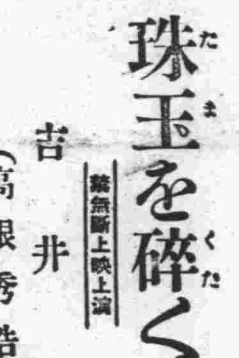 珠玉を碎く
たま
くだ
禁無斷上映上演
吉井
(高根秀浩